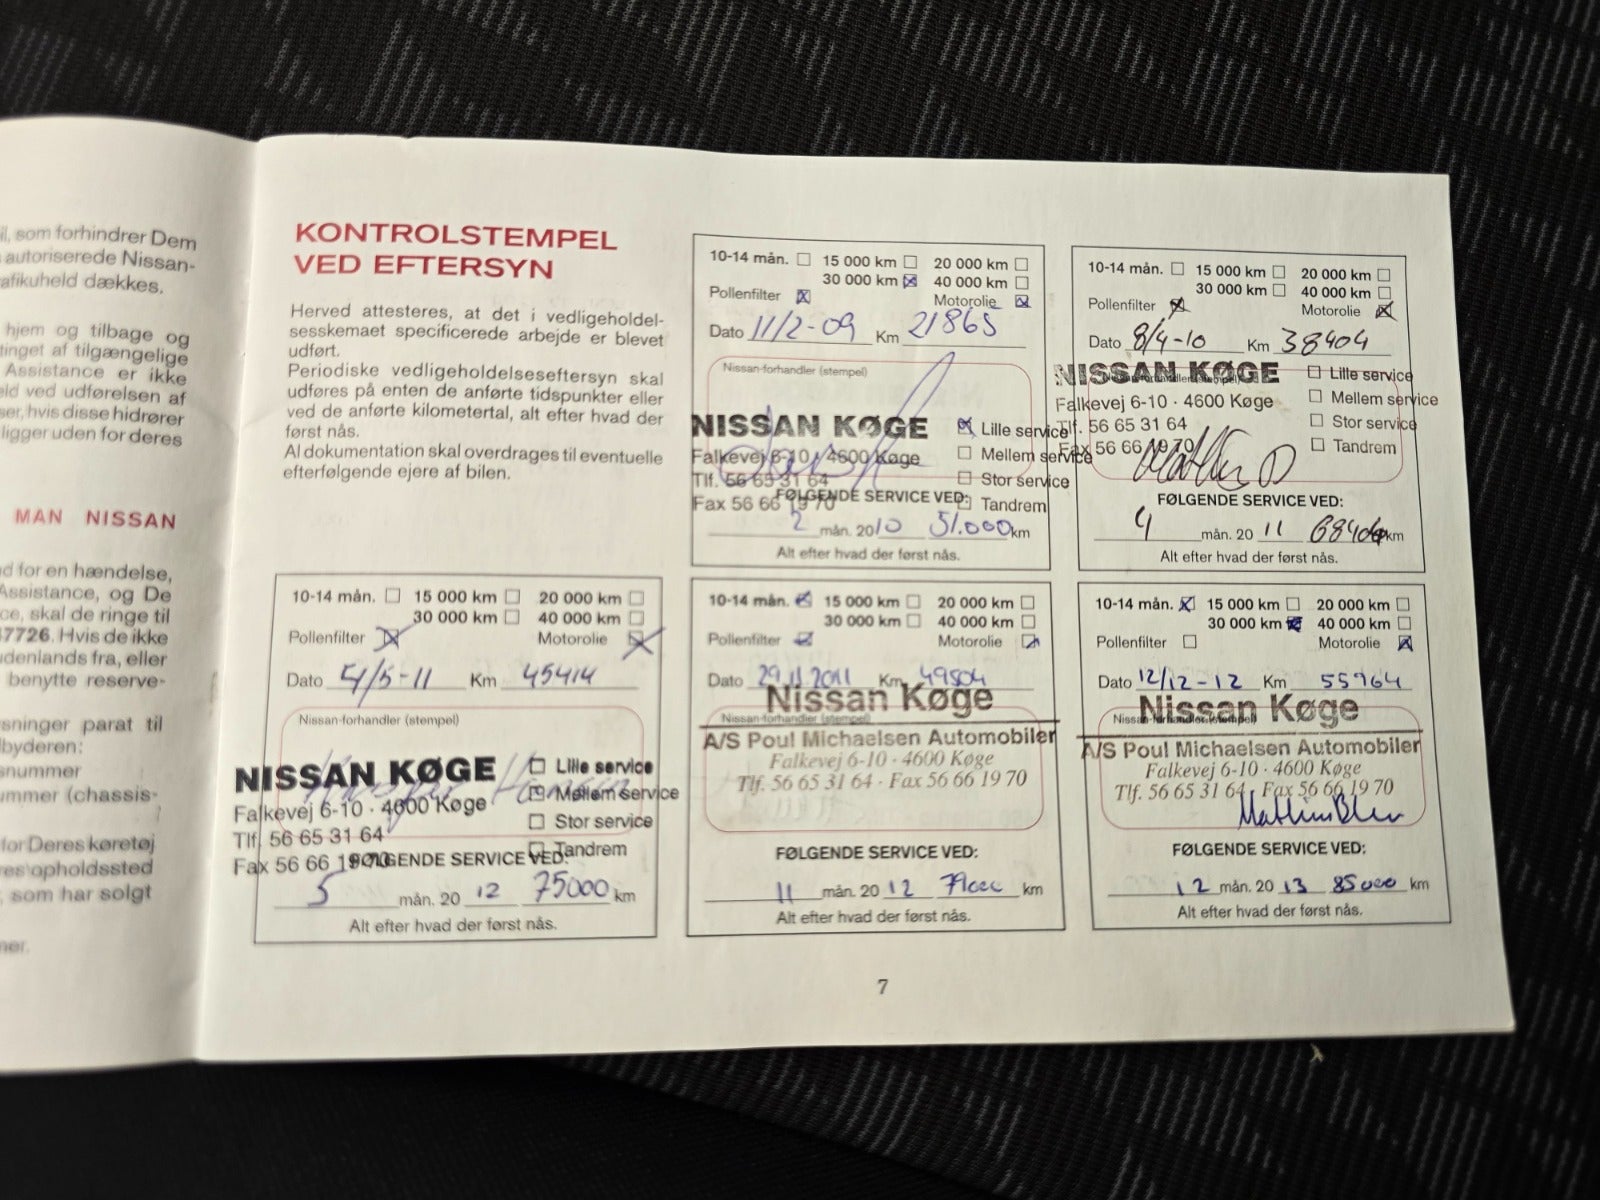 il, som forhindrer Dem
autoriserede Nissan-
afikuheld dækkes.
hjem og tilbage og
tinget af tilgængelige
Assistance er ikke
eld ved udførelsen af
ser, hvis disse hidrører
ligger uden for deres
MAN NISSAN
d for en hændelse,
Assistance, og De
ce, skal de ringe til
7726. Hvis de ikke
udenlands fra, eller
benytte reserve-
sninger parat til
lbyderen:
snummer
ummer (chassis-
for Deres køretøj
res opholdssted
, som har solgt
ner.
KONTROLSTEMPEL
VED EFTERSYN
Herved attesteres, at det i vedligeholdel-
sesskemaet specificerede arbejde er blevet
udført.
Periodiske vedligeholdelseseftersyn skal
udføres på enten de anførte tidspunkter eller
ved de anførte kilometertal, alt efter hvad der
først nås.
Al dokumentation skal overdrages til eventuelle
efterfølgende ejere af bilen.
10-14 mån. 15 000 km 20 000 km
30 000 km 40 000 km
Pollenfilter Motorolie
Dato 11/2-09 Km 21865
Nissan-forhandler (stempel)
NISSAN KØGE Lille service
Falkevej 6-10 · 4600 Køge Mellem service
Tlf. 56 65 31 64 Stor service
Fax 56 66 19 70 Tandrem
FØLGENDE SERVICE VED:
2 mån. 2010 51.000 km
Alt efter hvad der først nås.
10-14 mån. 15 000 km 20 000 km
30 000 km 40 000 km
Pollenfilter Motorolie
Dato 8/4-10 Km 38404
Nissan-forhandler (stempel)
NISSAN KØGE Lille service
Falkevej 6-10 · 4600 Køge Mellem service
Tlf. 56 65 31 64 Stor service
Fax 56 66 19 70 Tandrem
FØLGENDE SERVICE VED:
4 mån. 20 11 km
Alt efter hvad der først nås.
10-14 mån. 15 000 km 20 000 km
30 000 km 40 000 km
Pollenfilter Motorolie
Dato 5/5-11 Km 45414
Nissan-forhandler (stempel)
NISSAN KØGE Lille service
Falkevej 6-10 · 4600 Køge Mellem service
Tlf. 56 65 31 64 Stor service
Fax 56 66 19 70 Tandrem
FØLGENDE SERVICE VED:
5 mån. 20 12 75000 km
Alt efter hvad der først nås.
10-14 mån. 15 000 km 20 000 km
30 000 km 40 000 km
Pollenfilter Motorolie
Dato 29.11.2011 Km 49504
Nissan Køge
Nissan-forhandler (stempel)
A/S Poul Michaelsen Automobiler
Falkevej 6-10 · 4600 Køge
Tlf. 56 65 31 64 · Fax 56 66 19 70
FØLGENDE SERVICE VED:
11 mån. 20 12 79000 km
Alt efter hvad der først nås.
10-14 mån. 15 000 km 20 000 km
30 000 km 40 000 km
Pollenfilter Motorolie
Dato 12/12-12 Km 55964
Nissan Køge
Nissan-forhandler (stempel)
A/S Poul Michaelsen Automobiler
Falkevej 6-10 · 4600 Køge
Tlf. 56 65 31 64 · Fax 56 66 19 70
FØLGENDE SERVICE VED:
12 mån. 20 13 85000 km
Alt efter hvad der først nås.
7